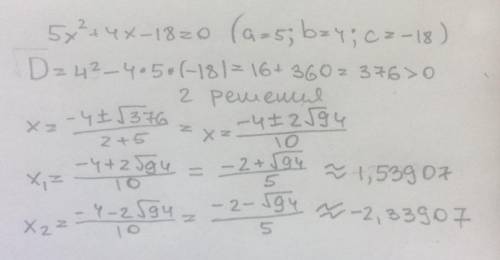 5x²+4x-18=0 (a=5; b=4; c=-18)
D=4²-4·5·(-18)=16+360=376>0
2 решения
x=(-4±√376)/(2+5)=x=(-4±2√94)/10
x₁=(-4+2√94)/10=(-2+√94)/5≈1,53907
x₂=(-4-2√94)/10=(-2-√94)/5≈-2,33907